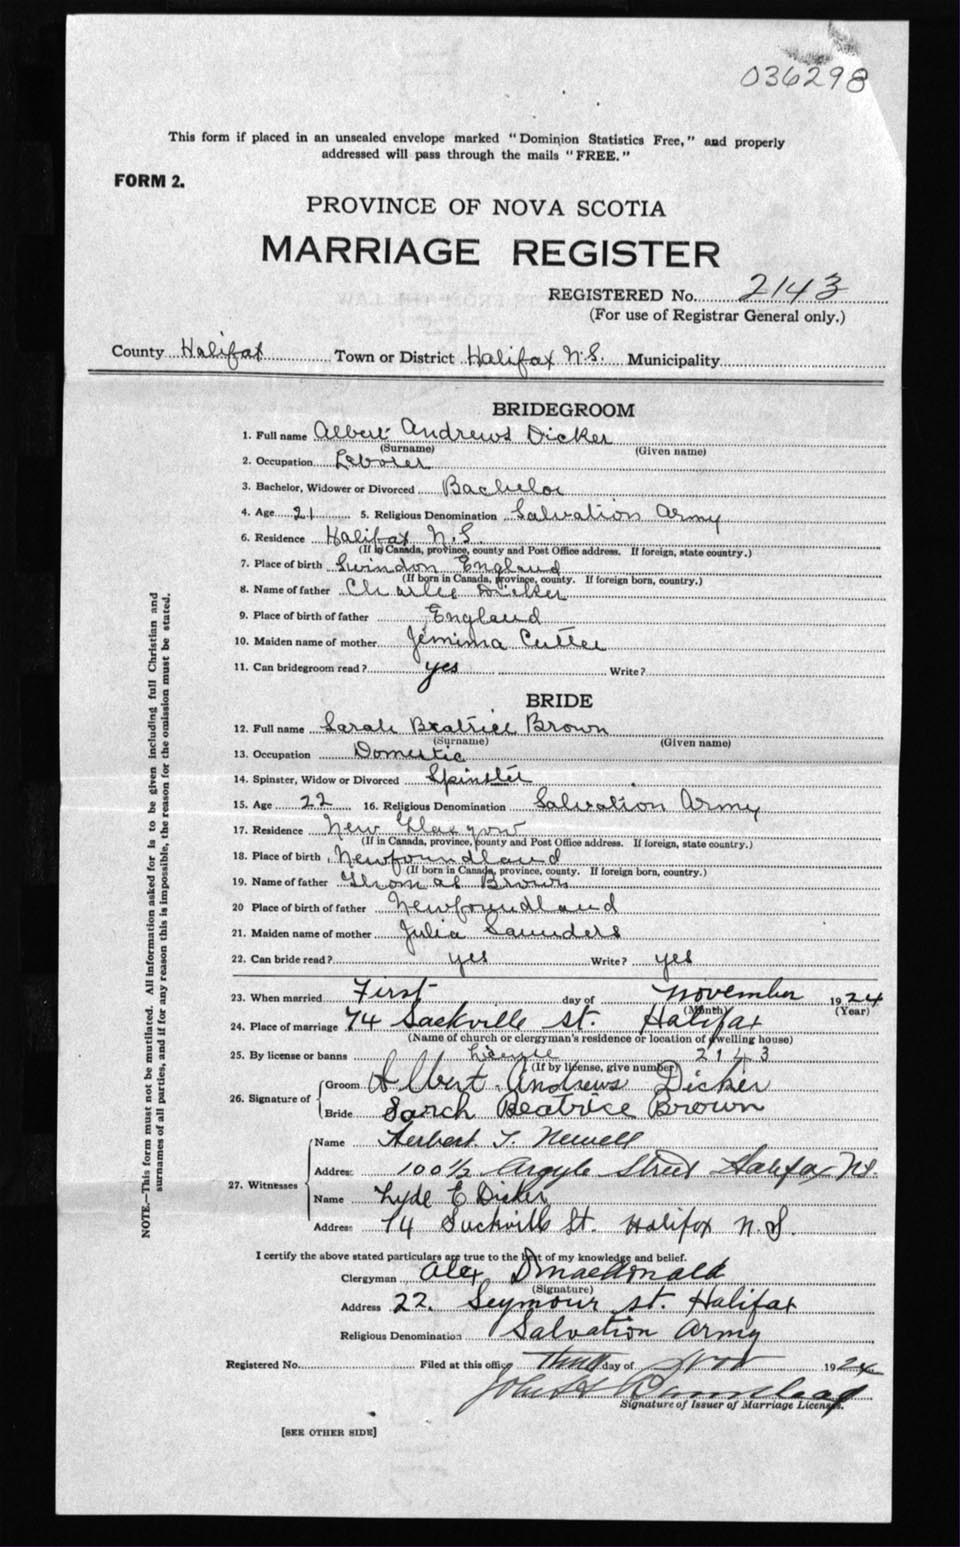 036298
This form if placed in an unsealed envelope marked "Dominion Statistics Free," and properly
addressed will pass through the mails "FREE."
FORM 2.
PROVINCE OF NOVA SCOTIA
MARRIAGE REGISTER
REGISTERED No. 2143
(For use of Registrar General only.)
County Halifax Town or District Halifax N.S. Municipality
BRIDEGROOM
1. Full name Albert Andrews Dicker
(Surname) (Given name)
2. Occupation Leborer
3. Bachelor, Widower or Divorced Bachelor
4. Age 21 5. Religious Denomination Salvation Army
6. Residence Halifax N.S.
(If in Canada, province, county and Post Office address. If foreign, state country.)
7. Place of birth Swindon England
(If born in Canada, province, county. If foreign born, country.)
8. Name of father Charlie Dicker
9. Place of birth of father England
10. Maiden name of mother Jemima Cutter
11. Can bridegroom read? yes Write?
BRIDE
12. Full name Sarah Beatrice Brown
(Surname) (Given name)
13. Occupation Domestic
14. Spinster, Widow or Divorced Spinster
15. Age 22 16. Religious Denomination Salvation Army
17. Residence New Glasgow
(If in Canada, province, county and Post Office address. If foreign, state country.)
18. Place of birth Newfoundland
(If born in Canada, province, county. If foreign born, country.)
19. Name of father Thomas Brown
20 Place of birth of father Newfoundland
21. Maiden name of mother Julia Saunders
22. Can bride read? yes Write? yes
23. When married First day of November 1924
(Month) (Year)
24. Place of marriage 74 Sackville St. Halifax
(Name of church or clergyman's residence or location of dwelling house)
25. By license or banns License 2143
(If by license, give number)
26. Signature of Groom Albert Andrews Dicker
Bride Sarah Beatrice Brown
27. Witnesses Name Herbert T. Newell
Address 100½ Argyle Street Halifax N.S.
Name Lyde E Dicker
Address 74 Sackville St. Halifax N.S.
I certify the above stated particulars are true to the best of my knowledge and belief.
Clergyman Alex D MacDonald
(Signature)
Address 22. Seymour St. Halifax
Religious Denomination Salvation Army
Registered No. Filed at this office day of Nov 1924
Signature of Issuer of Marriage Licenses.
[SEE OTHER SIDE]
NOTE.—This form must not be mutilated. All information asked for is to be given including full Christian and
surnames of all parties, and if for any reason this is impossible, the reason for the omission must be stated.